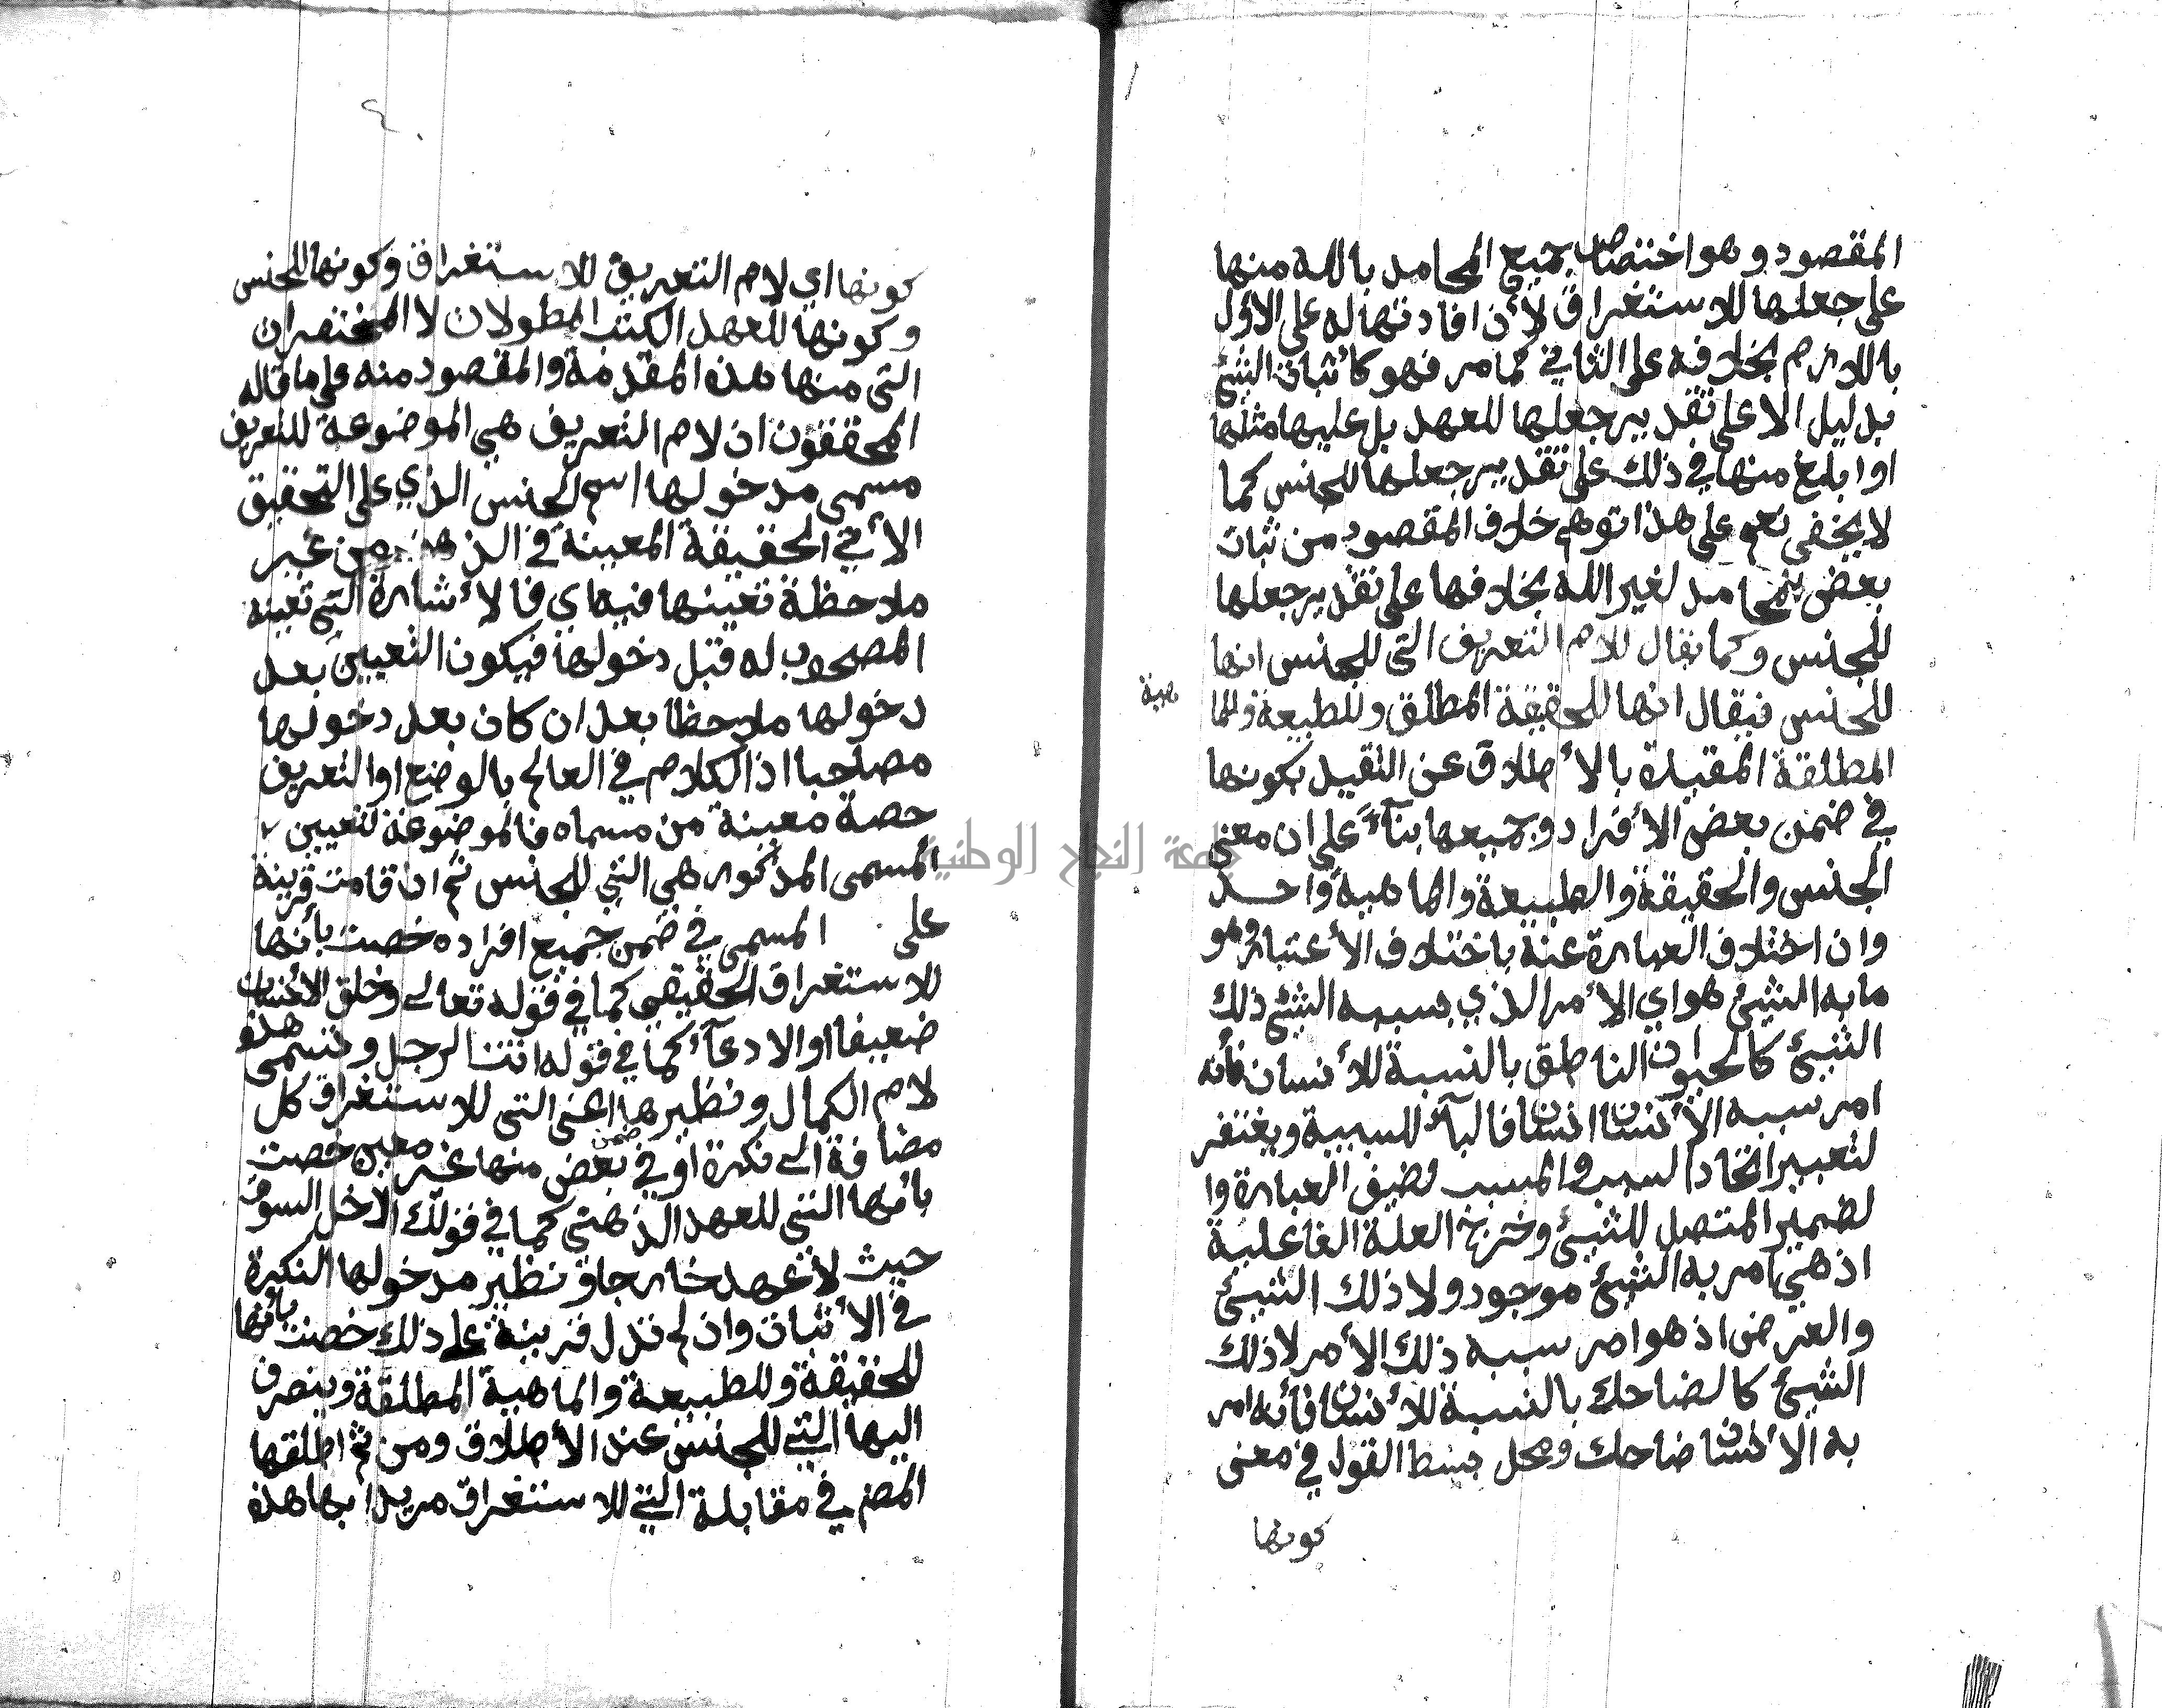 المقصود وهو اختصاص جميع المحامد بالله منها
على جعلها للاستغراق لأن افادتها له على الاول
باللازم بخلافه على الثاني كما مر فهو كأثبات الشئ
بدليل الا على تقدير جعلها للعهد بل عليها مثلها
او ابلغ منها في ذلك على تقدير جعلها للجنس كما
لا يخفى نعم على هذا توهم خلاف المقصود من ثبات
بعض محامد لغير الله بخلافها على تقدير جعلها
للجنس وكما يقال للام التعريف التي للجنس انها
للجنس فيقال انها للحقيقة المطلق وللطبيعة وللما
هية
المطلقة المقيدة بالأطلاق عن التقييد بكونها
في ضمن بعض الأفراد وجميعها بنآءً على ان معنى
الجنس والحقيقة والطبيعة والماهية واحد
وان اختلاف العبارة عنه باختلاف الأعتبار وهو
مابه الشيئ هو اي الأمر الذي بسببه الشيئ ذلك
الشيئ كالحيوان الناطق بالنسبة للأنسان فأنه
امر سببه الأنسان انسان فالبآء للسببية ويغتفر
لتعبير اتحاد السبب والمسبب لضيق العبارة وا
لضمير المتصل للشيئ وخرج العلة الفاعلية
اذ هي امر به الشيئ موجود ولا ذلك الشيئ
والعرض اذ هو امر سببه ذلك الأمر لا ذلك
الشيئ كالضاحك بالنسبة للأنسان فأنه امر
به الأنسان ضاحك ومحل بسط القول في معنى
كونها
٤
كونها اي لام التعريق للاستغراق وكونها للجنس
وكونها للعهد الكتب المطولات لا المختصرات
التي منها هذه المقدمة والمقصود منه على ما قاله
المحققون ان لام التعريف هي الموضوعة للتعريف
مسمى مدخولها اسم الجنس الذي على التحقيق
الأتي الحقيقة المعينة في الذهن من غير
ملاحظة تعينها فيها اي فالأشارة التي تعينه
المصحوب له قبل دخولها فيكون التعيين بعد
دخولها ملاحظا بعد ان كان بعد دخولها
مصاحبا اذ الكلام في العالم بالوضع او التعريف
حصة معينة من مسماه فالموضوعة لتعيين
المسمى المذكور هي التي للجنس ثم ان قامت قرينة
على المسمى في ضمن جميع افراده خصت بأنها
للاستغراق الحقيقي كما في قوله تعالى وخلق الأنسان
ضعيفا او الادعآء كما في قوله انت الرجل وتسمى هذه
لام الكمال ونظيرها اعني التي للاستغراق كل
مضافة الى نكرة او في ضمن بعض منها غير معين خصت
بأنها التي للعهد الذهني كما في قولك ادخل السوق
حيث لا عهد خارجا ونظير مدخولها النكرة
في الأثبات وان لم تدل قرينة على ذلك خصت بأنها
للحقيقة وللطبيعة والماهية المطلقة وينصرف
اليها التي للجنس عند الأطلاق ومن ثم اطلقها
المصم في مقابلة التي للاستغراق مريدا بها هذه
جامعة النجاح الوطنية